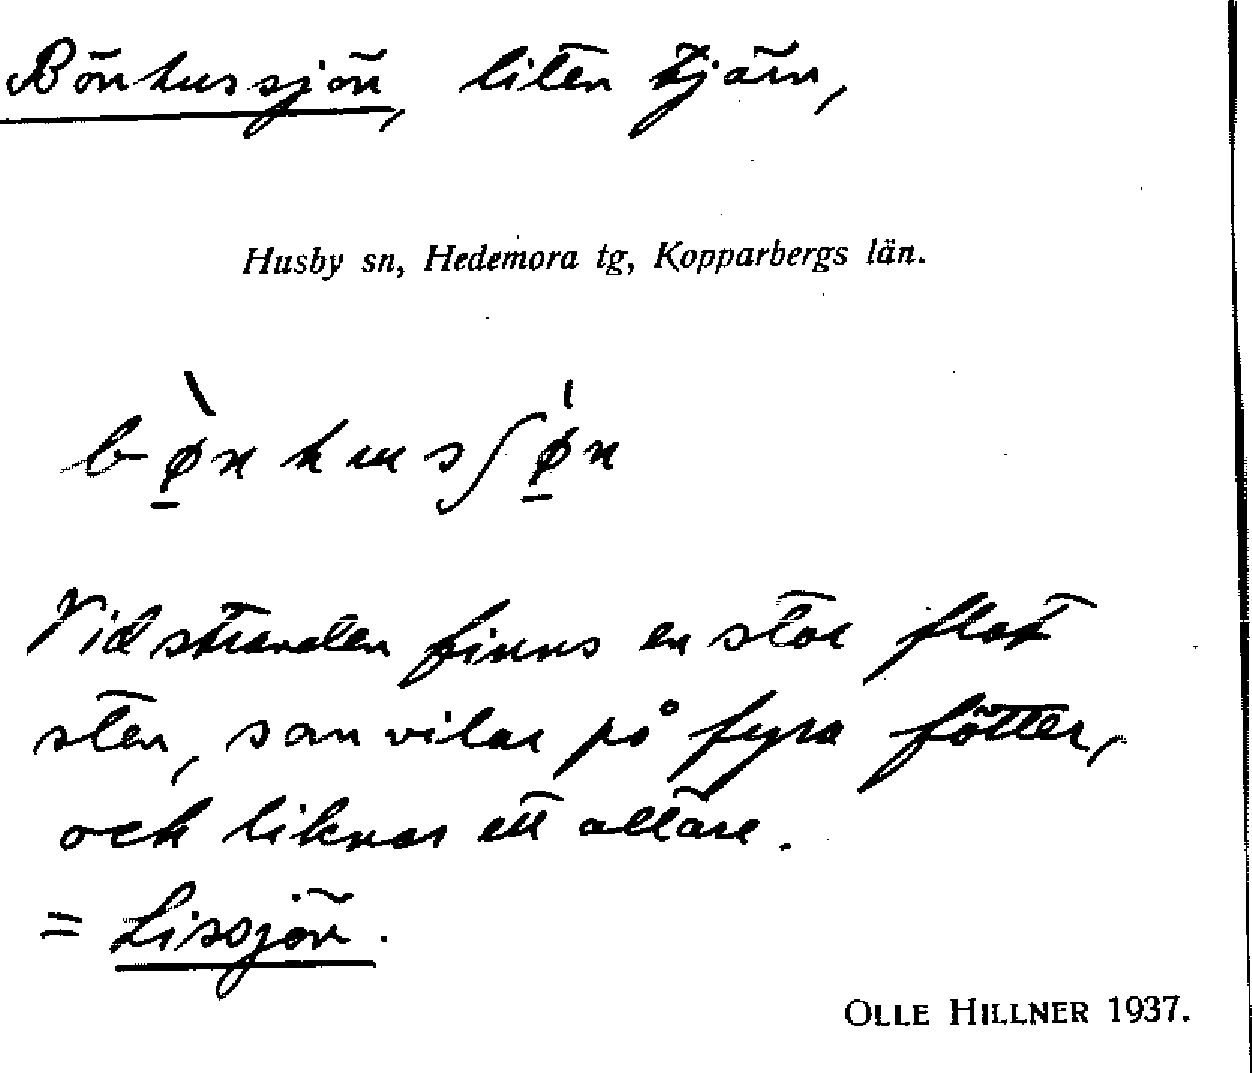 Bönhussjön, liten tjärn,
Husby sn, Hedemora tg, Kopparbergs län.
bø̱̀nhusʃǿ̱n
Vid stranden finns en stor flat
sten, som vilar på fyra fötter,
och liknar ett altare.
= Lissjön.
OLLE HILLNER 1937.